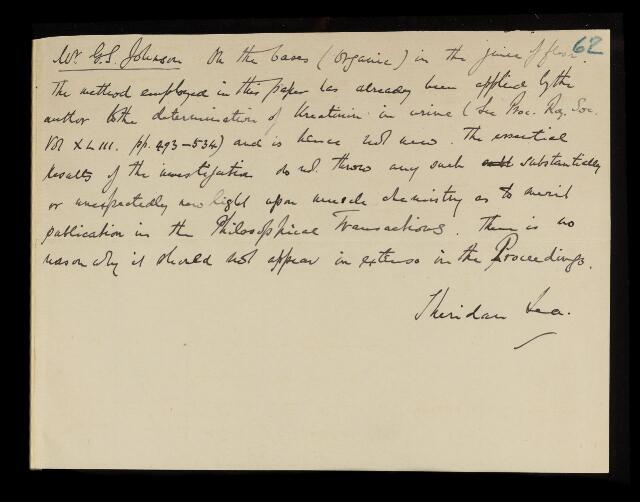 Mr. G.S. Johnson On the bases (Organic) in the juice of flesh. 62
The method employed in this paper has already been applied by the
author to the determination of Kreatinin in urine (See Proc. Roy. Soc.
Vol XLIII. pp. 493-534) and is hence not new. The essential
results of the investigation do not throw any such substantially
or unexpectedly new light upon muscle chemistry as to merit
publication in the Philosophical Transactions. There is no
reason why it should not appear in extenso in the Proceedings.
Sheridan Lea.